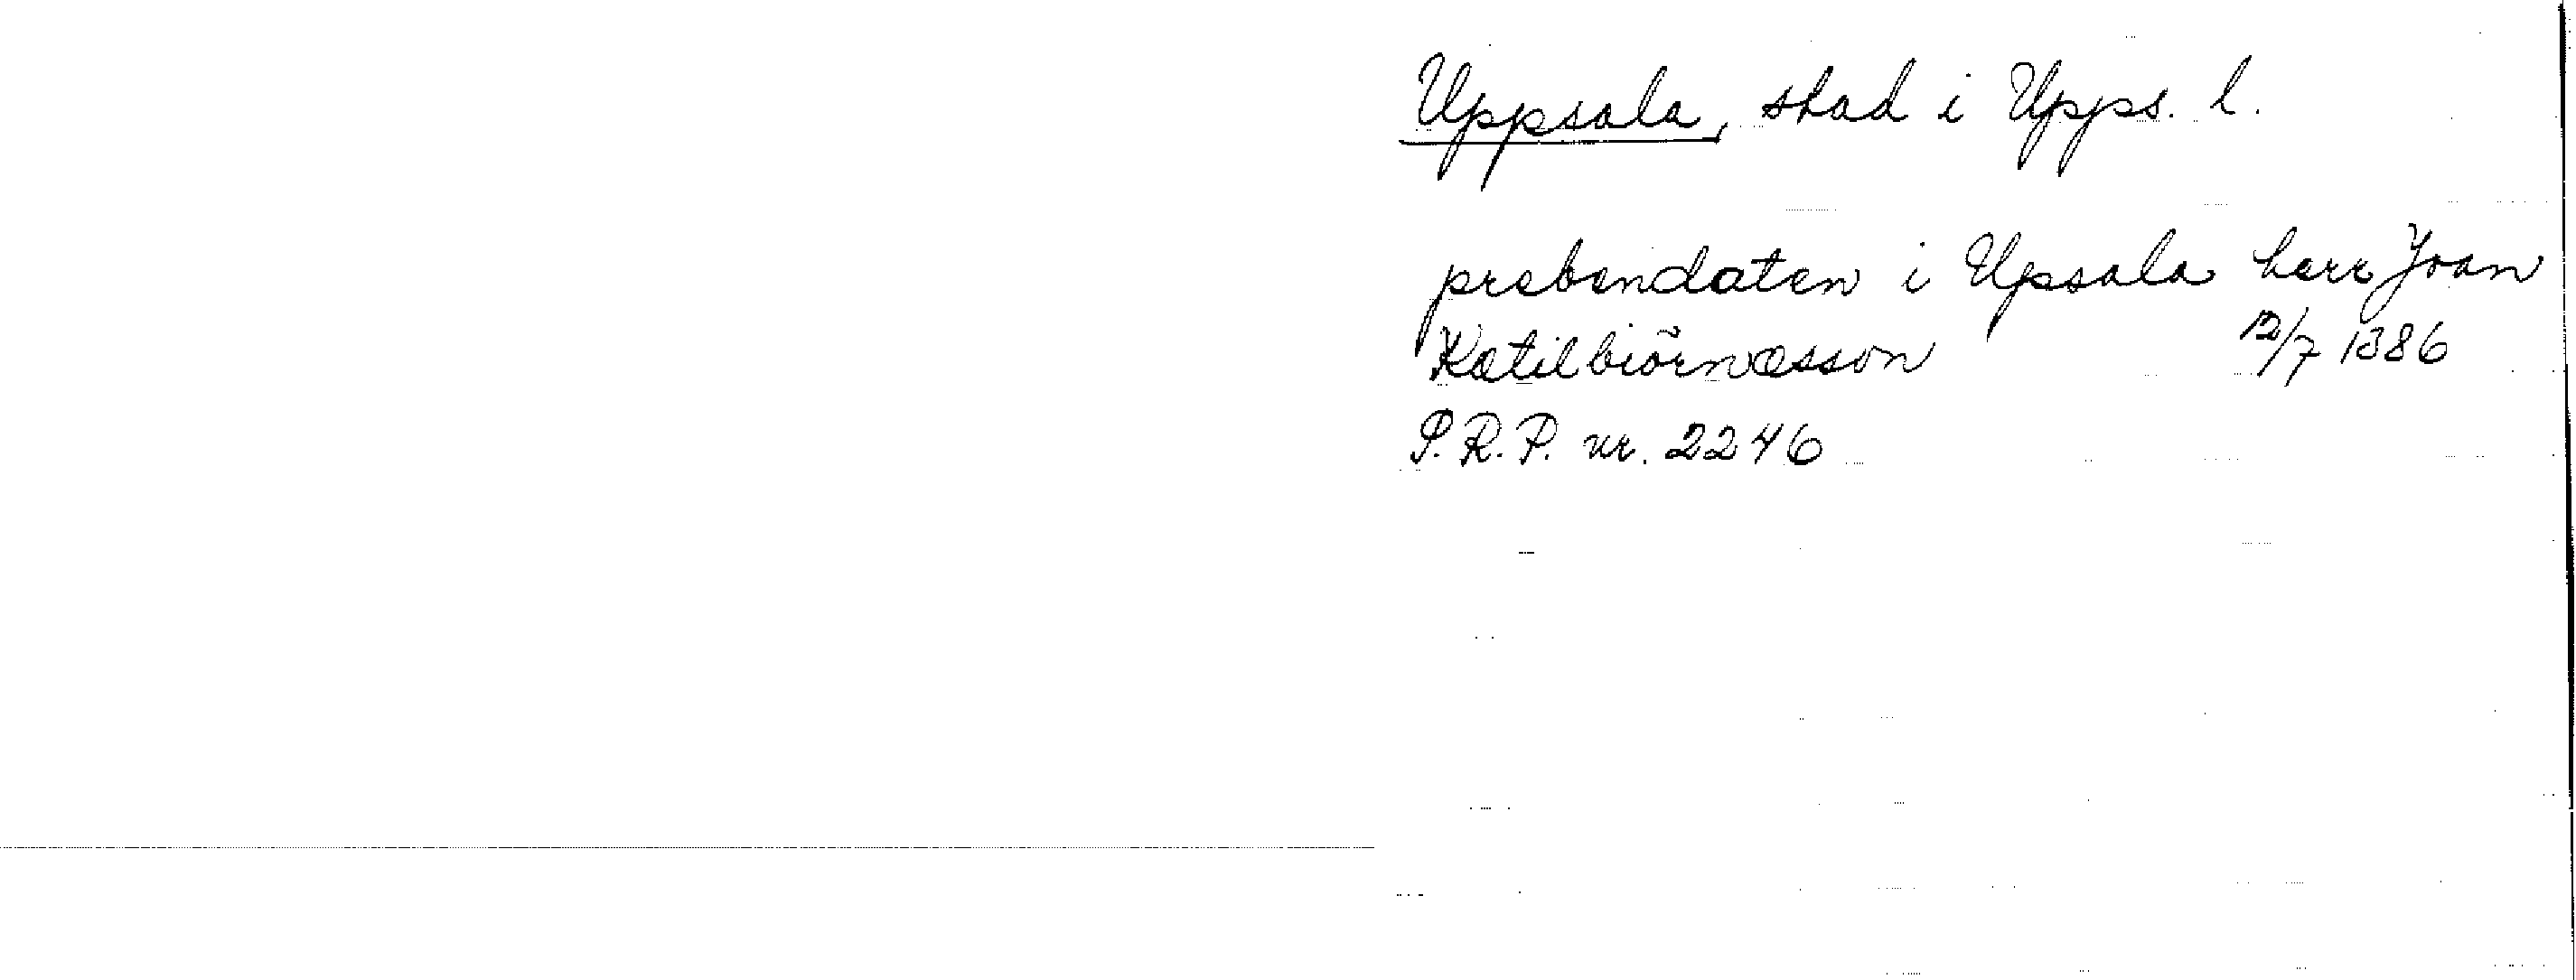 Uppsala, stad i Upps. l.
prebendaten i Upsala herr Joan
Katilbiörnæsson 12/7 1386
S.R.P. nr. 2246